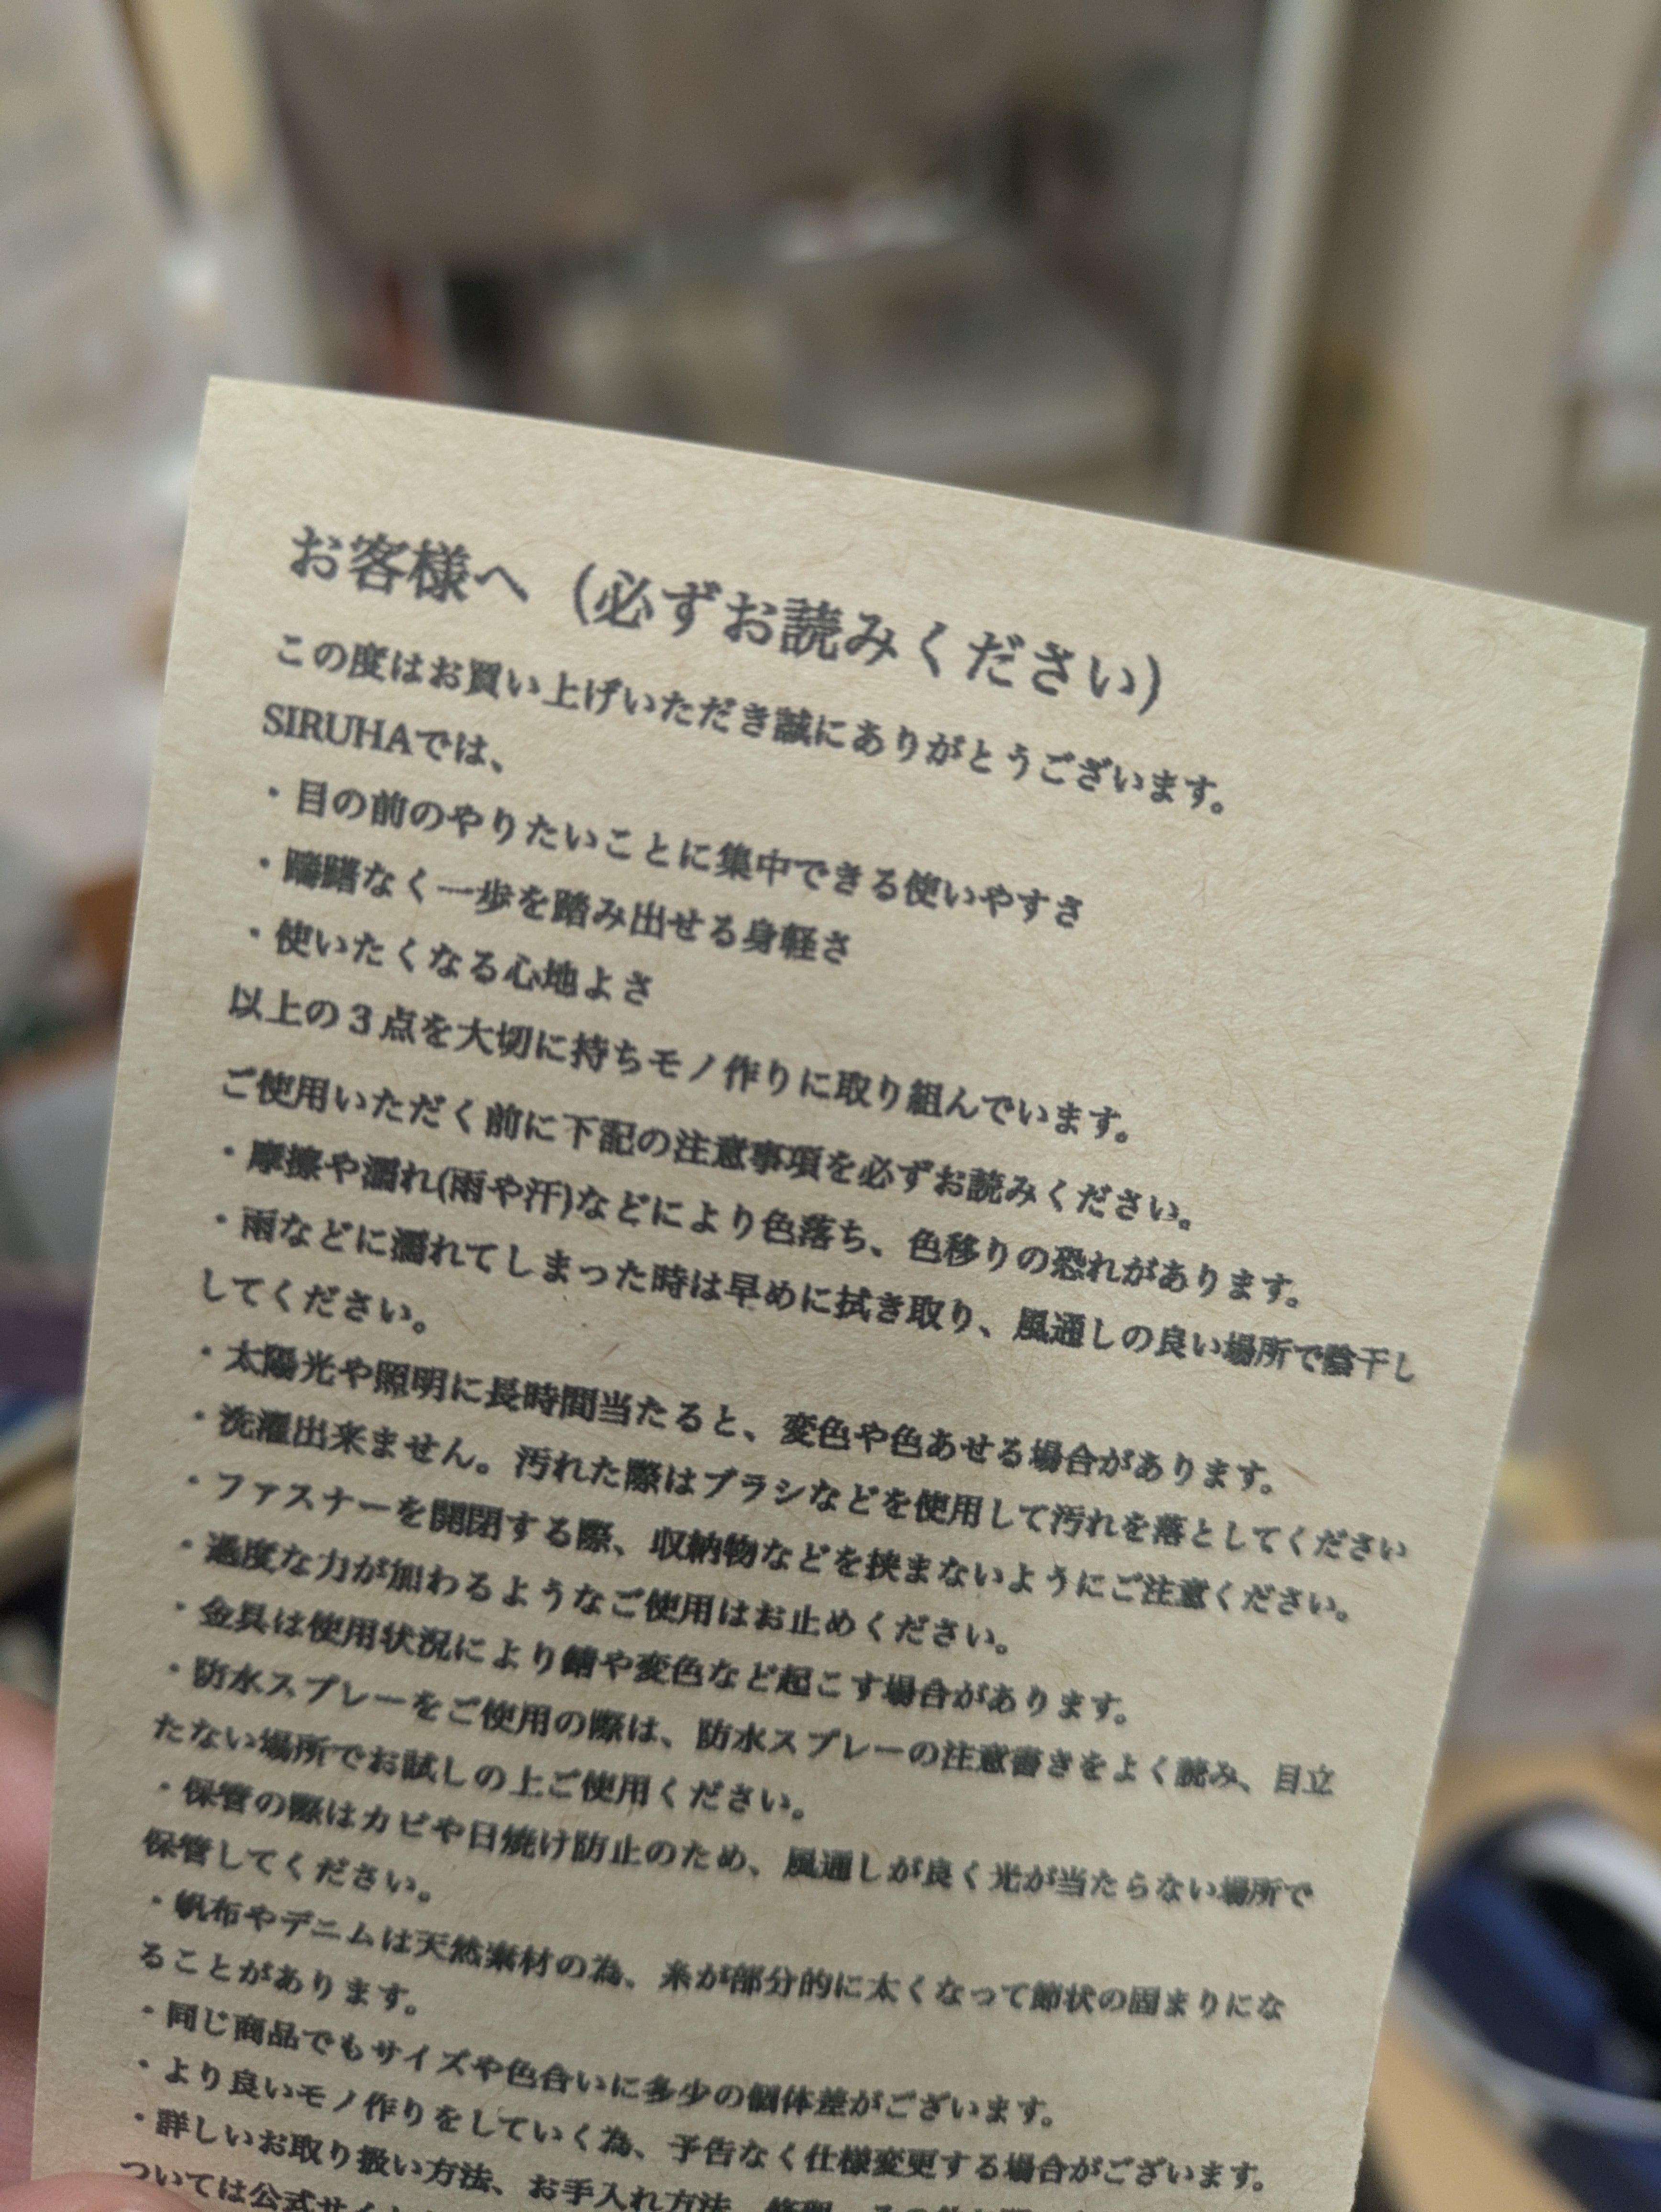 お客様へ（必ずお読みください）
この度はお買い上げいただき誠にありがとうございます。
SIRUHAでは、
・目の前のやりたいことに集中できる使いやすさ
・躊躇なく一歩を踏み出せる身軽さ
・使いたくなる心地よさ
以上の3点を大切に持ちモノ作りに取り組んでいます。
ご使用いただく前に下記の注意事項を必ずお読みください。
・摩擦や濡れ(雨や汗)などにより色落ち、色移りの恐れがあります。
・雨などに濡れてしまった時は早めに拭き取り、風通しの良い場所で陰干し
してください。
・太陽光や照明に長時間当たると、変色や色あせる場合があります。
・洗濯出来ません。汚れた際はブラシなどを使用して汚れを落としてください
・ファスナーを開閉する際、収納物などを挟まないようにご注意ください。
・過度な力が加わるようなご使用はお止めください。
・金具は使用状況により錆や変色など起こす場合があります。
・防水スプレーをご使用の際は、防水スプレーの注意書きをよく読み、目立
たない場所でお試しの上ご使用ください。
・保管の際はカビや日焼け防止のため、風通しが良く光が当たらない場所で
保管してください。
・帆布やデニムは天然素材の為、糸が部分的に太くなって節状の固まりにな
ることがあります。
・同じ商品でもサイズや色合いに多少の個体差がございます。
・より良いモノ作りをしていく為、予告なく仕様変更する場合がございます。
・詳しいお取り扱い方法、お手入れ方法、修理、
ついては公式サイト